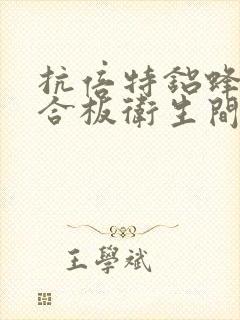 抗倍特鋁蜂
合板衛生間
王學斌